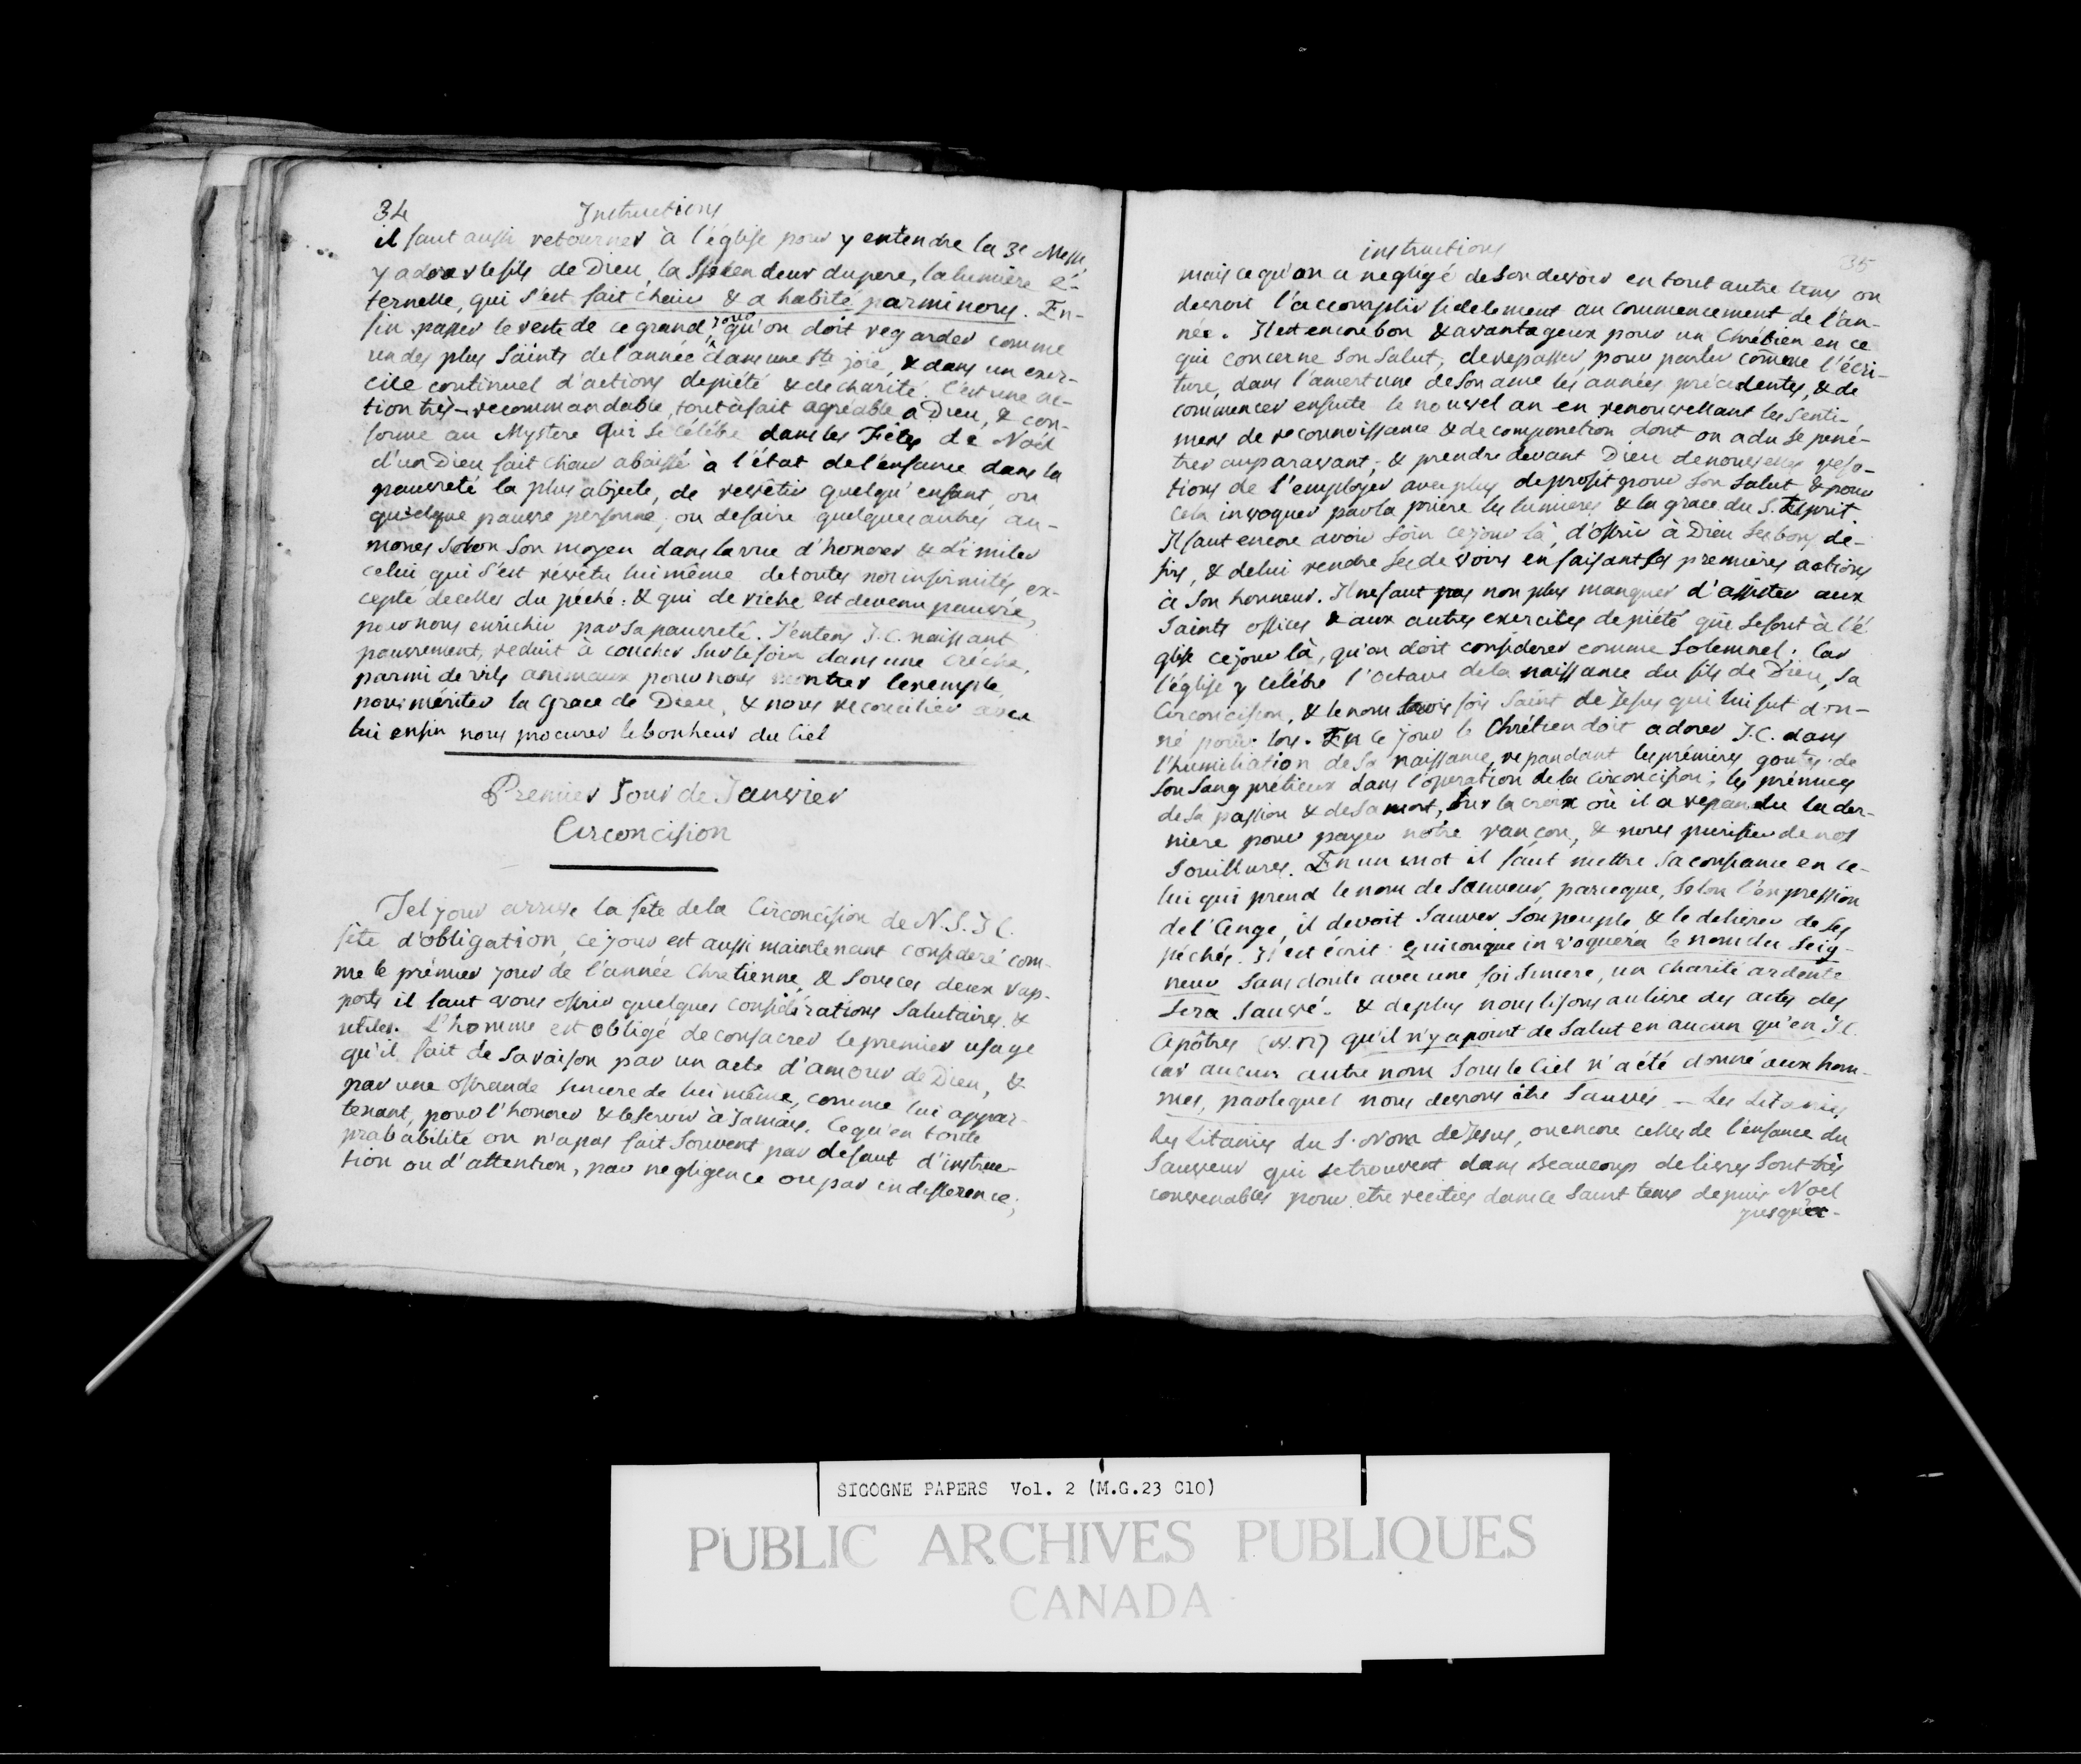 34 Instructions
il faut aussi retourner à l'église pour y entendre la 3e Messe
y adorer le fils de Dieu, la splendeur du pere, la lumière é-
ternelle, qui s'est fait chair & a habité parmi nous. En-
fin passer le reste de ce grand jour qu'on doit regarder comme
un des plus saints de l'année dans une ste joie, & dans un exer-
cice continuel d'actions de piété & de charité. C'est une ac-
tion très-recommandable, tout à fait agréable à Dieu, & con-
forme au Mystere qui se célébre dans les Fêtes de Noël
d'un Dieu fait chair abaissé à l'état de l'enfance dans la
pauvreté la plus abjecte, de revêtir quelqu'enfant, ou
quelque pauvre personne, ou de faire quelques autres au-
mones selon son moyen dans la vue d'honorer & d'imiter
celui qui s'est révêtu lui même de toutes nos infirmités, ex-
cepté de celles du péché: & qui de riche est devenu pauvre,
pour nous enrichir par sa pauvreté. J'entens J.C. naissant
pauvrement, réduit à coucher sur le foin dans une créche,
parmi de vils animaux pour nous montrer l'exemple,
nous mériter la grace de Dieu, & nous reconcilier avec
lui enfin nous procurer le bonheur du Ciel
Premier Jour de Janvier
Circoncision
Tel jour arrive la fête de la Circoncision de N.S.J.C.
fête d'obligation, ce jour est aussi maintenant consideré com-
me le prémier jour de l'année Chretienne, & sous ces deux rap-
ports il faut vous offrir quelques considérations salutaires &
utiles. L'homme est obligé de consacrer le premier usage
qu'il fait de sa raison par un acte d'amour de Dieu, &
par une offrande sincere de lui même, comme lui appar-
tenant, pour l'honorer & le servir à jamais. Ce qu'en toute
probabilité on n'a pas fait souvent par defaut d'instruc-
tion ou d'attention, par negligence ou par indifference;
instructions 35
mais ce qu'on a negligé de son devoir en tout autre tems on
devroit l'accomplir fidelement au commencement de l'an-
née. Il est encore bon & avantageux pour un Chrétien en ce
qui concerne son salut, de repasser pour parler comme l'écri-
ture, dans l'amertume de son ame les années précedentes, & de
commencer ensuite le nouvel an en renouvellant les senti-
mens de reconnoissance & de componction dont on a du se pené-
trer auparavant; & prendre devant Dieu de nouvelles reso-
tions de l'employer avec plus de profit pour son salut & pour
cela invoquer par la priere les lumieres & la grace du S. Esprit.
Il faut encore avoir soin ce jour là, d'offrir à Dieu ses bons de-
sirs, & de lui rendre ses devoirs en faisant ses premières actions
à son honneur. Il ne faut pas non plus manquer d'assister aux
saints offices & aux autres exercices de piété qui se font à l'é
glise ce jour là, qu'on doit considerer comme solemnel. Car
l'église y célébre l'octave de la naissance du fils de Dieu, sa
Circoncision, & le nom trois fois saint de Jesus qui lui fut don-
né pour lors. En ce jour le Chrétien doit adorer J.C. dans
l'humiliation de sa naissance, repandant les prémieres goutes de
son sang prétieux dans l'opération de la circoncision; les prémices
de sa passion & de sa mort, sur la croix où il a repandu la der-
niere pour payer notre rançon, & nous purifier de nos
souillures. En un mot il faut mettre sa confiance en ce-
lui qui prend le nom de sauveur, parceque, selon l'expression
de l'Ange, il devoit sauver son peuple & le delivrer de ses
péchés. Il est écrit: quiconque invoquera le nom du Seig-
neur sans doute avec une foi sincere, un charité ardente
sera sauvé. & de plus nous lisons au livre des actes des
Apôtres qu'il n'y a point de salut en aucun qu'en J.C.
car aucun autre nom sous le Ciel n'a été donné aux hom-
mes, par lequel nous devrons être sauvés — Les Litanies
Les Litanies du S. Nom de Jesus, ou encore celles de l'enfance du
Sauveur qui se trouvent dans beaucoup de livres sont très
convenables pour etre recitées dans ce saint tems depuis Noël
jusqu'a-
SIGOGNE PAPERS Vol. 2 (M.G.23 C10)
PUBLIC ARCHIVES PUBLIQUES
CANADA